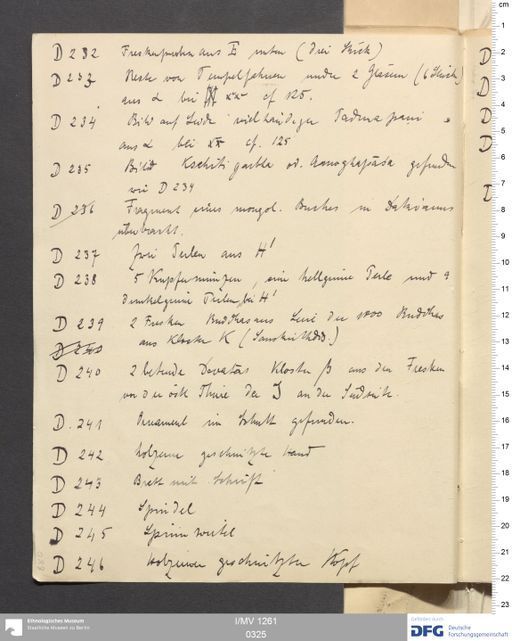 D 232 Freskenproben aus E unten (drei Stück)
D 233 Reste von Tempelfahnen unter 2 Gläsern (6 Stück)
aus α bei cf 125.
D 234 Bild auf Seide vielhändiger Padmapani
aus α bei cf. 125
D 235 Bild Kschitigarbha od. Amoghapāśa gefunden
wie D 234
D 236 Fragment eines mongol. Buches in Dakianus
überbracht.
D 237 Zwei Perlen aus H'
D 238 5 Kupfermünzen, eine hellgrüne Perle und 9
dunkelgrüne Perlen bei H'
D 239 2 Fresken Buddhas aus Serie der 1000 Buddhas
aus Kloster K (Sanskrithdd.)
D 240
D 240 2 betende Devatās Kloster β aus den Fresken
von der östl Thüre der an der Südseite.
D. 241 Ornament im Schutt gefunden.
D 242 holzerne geschnitzte Hand
D 243 Brett mit Schrift
D 244 Spindel
D 245 Spinnwirtel
D 246 holzerner geschnitzter Kopf
D
D
D
D
D
D
cm
1
2
3
4
5
6
7
8
9
10
11
12
13
14
15
16
17
18
19
20
21
22
23
Ethnologisches Museum
Staatliche Museen zu Berlin
I/MV 1261
0325
Gefördert durch
DFG Deutsche
Forschungsgemeinschaft